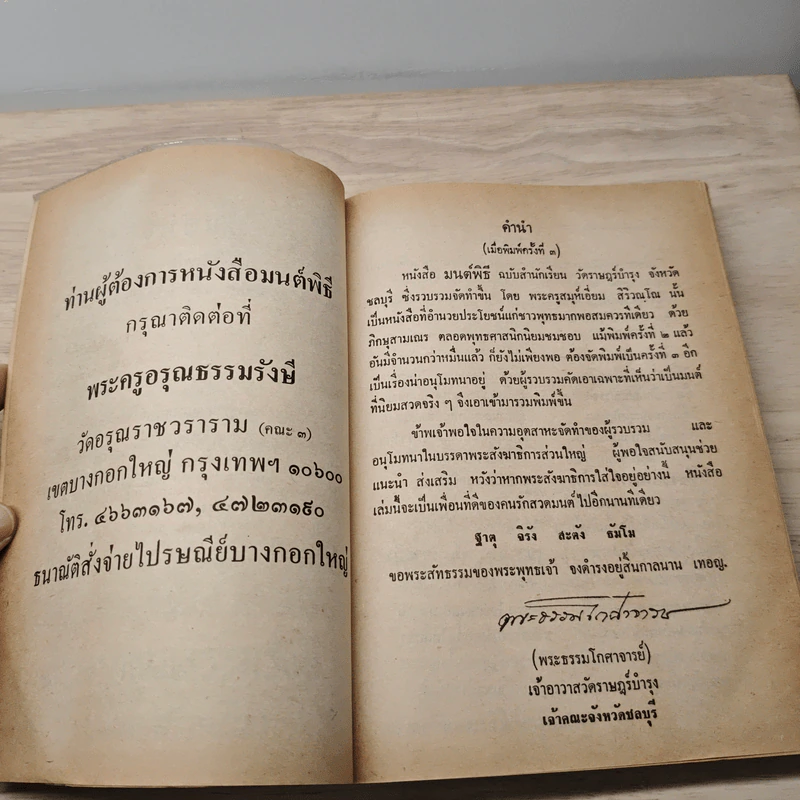 ท่านผู้ต้องการหนังสือมนต์พิธี
กรุณาติดต่อที่
พระครูอรุณธรรมรังษี
วัดอรุณราชวราราม (คณะ ๓)
เขตบางกอกใหญ่ กรุงเทพฯ ๑๐๖๐๐
โทร. ๔๖๖๓๑๖๗, ๔๗๒๓๑๙๐
ธนาณัติสั่งจ่ายไปรษณีย์บางกอกใหญ่
คำนำ
(เมื่อพิมพ์ครั้งที่ ๓)
หนังสือ มนต์พิธี ฉบับสำนักเรียน วัดราษฎร์บำรุง จังหวัด
ชลบุรี ซึ่งรวบรวมจัดทำขึ้น โดย พระครูสมุห์เอี่ยม สิริวณฺโณ นั้น
เป็นหนังสือที่อำนวยประโยชน์แก่ชาวพุทธมากพอสมควรทีเดียว ด้วย
ภิกษุสามเณร ตลอดพุทธศาสนิกนิยมชมชอบ แม้พิมพ์ครั้งที่ ๒ แล้ว
อันมีจำนวนกว่าหมื่นแล้ว ก็ยังไม่เพียงพอ ต้องจัดพิมพ์เป็นครั้งที่ ๓ อีก
เป็นเรื่องน่าอนุโมทนาอยู่ ด้วยผู้รวบรวมคัดเอาเฉพาะที่เห็นว่าเป็นมนต์
ที่นิยมสวดจริง ๆ จึงเอาเข้ามารวมพิมพ์ขึ้น
ข้าพเจ้าพอใจในความอุตสาหะจัดทำของผู้รวบรวม และ
อนุโมทนาในบรรดาพระสังฆาธิการส่วนใหญ่ ผู้พอใจสนับสนุนช่วย
แนะนำ ส่งเสริม หวังว่าหากพระสังฆาธิการใส่ใจอยู่อย่างนี้ หนังสือ
เล่มนี้จะเป็นเพื่อนที่ดีของคนรักสวดมนต์ไปอีกนานทีเดียว
ฐาตุ จิรัง สะตัง ธัมโม
ขอพระสัทธรรมของพระพุทธเจ้า จงดำรงอยู่สิ้นกาลนาน เทอญ.
พระธรรมโกศาจารย์
(พระธรรมโกศาจารย์)
เจ้าอาวาสวัดราษฎร์บำรุง
เจ้าคณะจังหวัดชลบุรี